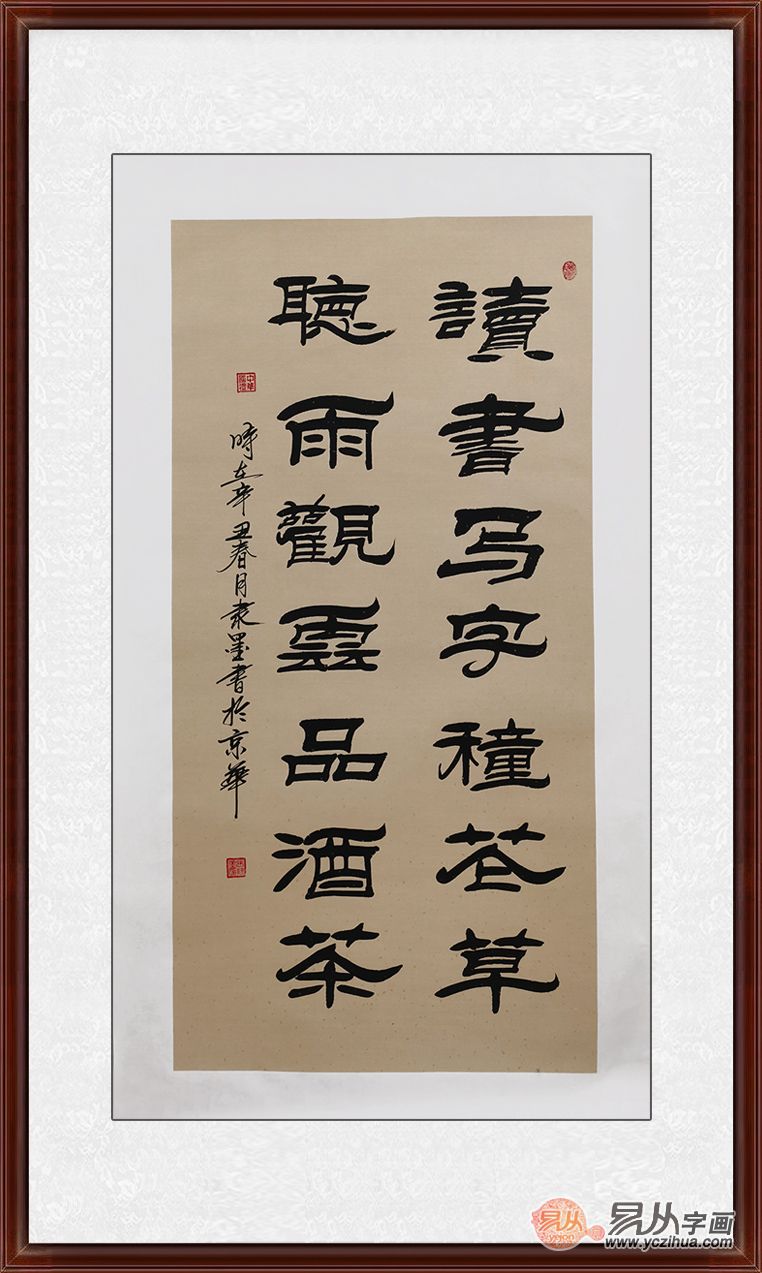 讀書写字種花草
聽雨觀雲品酒茶
時在辛丑春月隶墨書於京華
易从
yejon
易从字画
www.yczihua.com